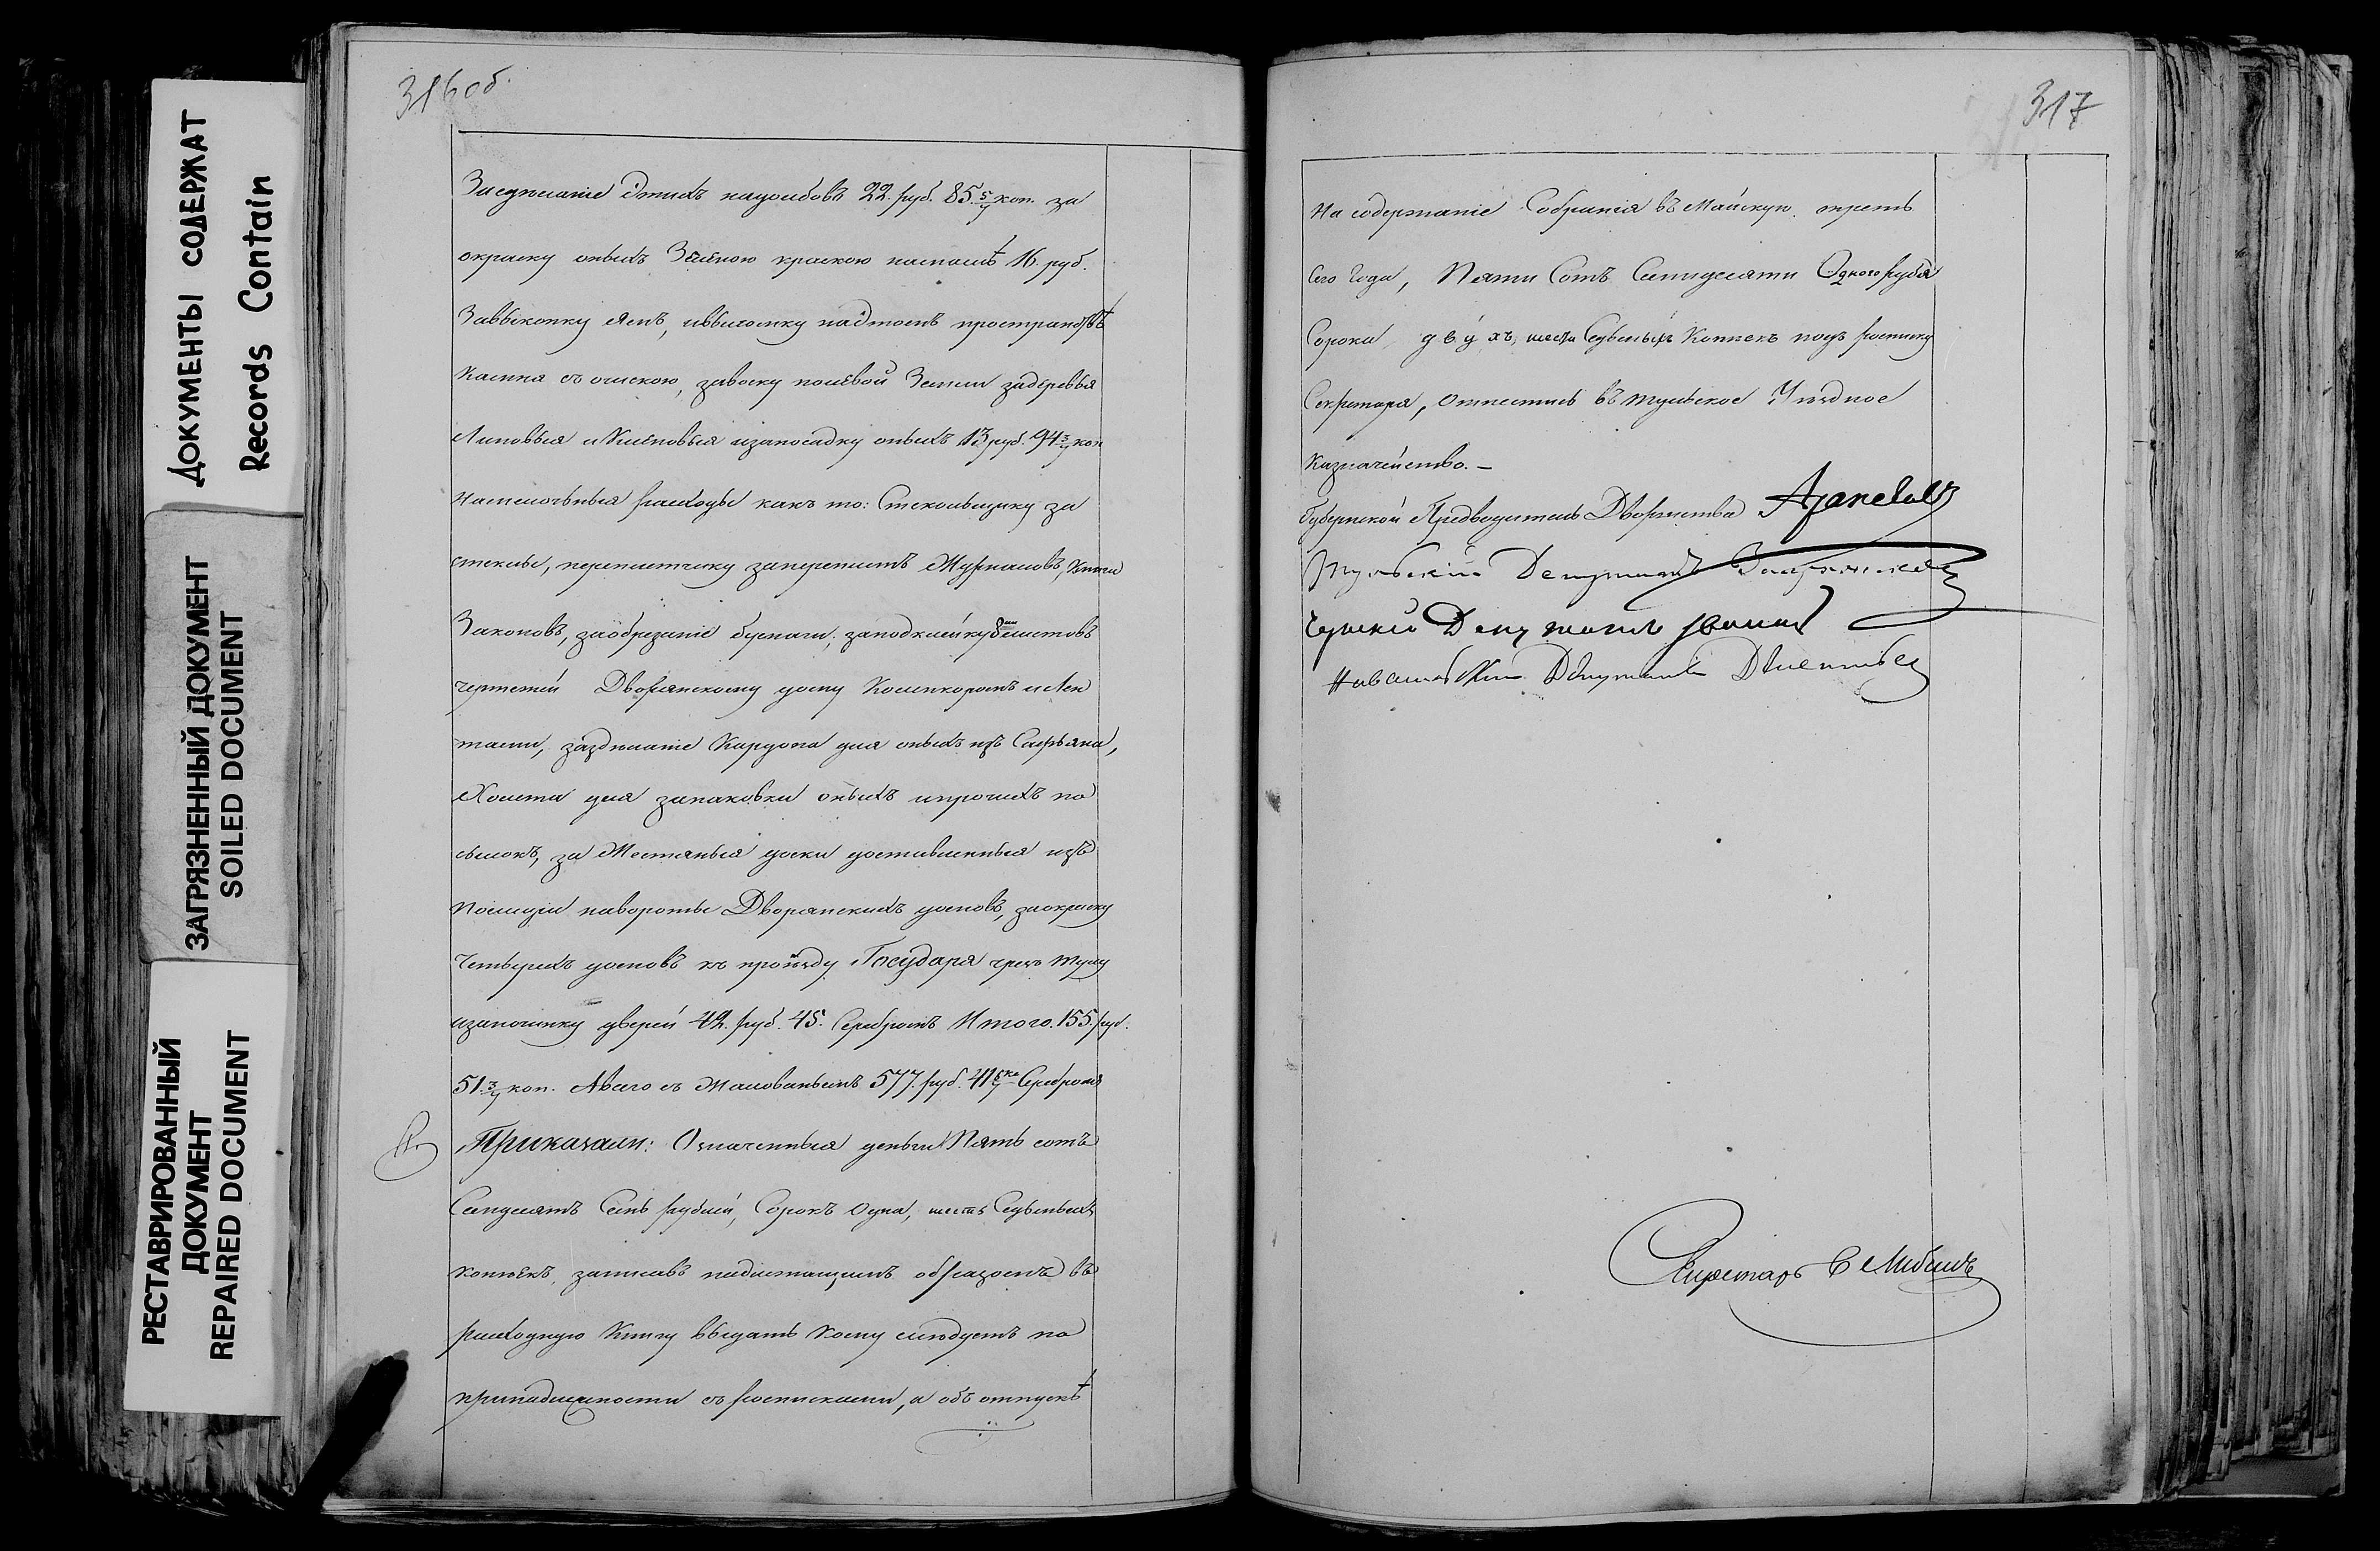 ДОКУМЕНТЫ СОДЕРЖАТ
Records Contain
ЗАГРЯЗНЕННЫЙ ДОКУМЕНТ
SOILED DOCUMENT
РЕСТАВРИРОВАННЫЙ
ДОКУМЕНТ
REPAIRED DOCUMENT
316 об.
За сделание этихъ надолбовъ 22. руб. 85 5/7 коп. за
окраску оныхъ Зеленою краскою на маслѣ 16. руб.
За выкопку ямъ, и выломку въ томъ пространствѣ
камня съ очискою, за воску полевой Земли за деревья
Липовыя и Кленовыя и за посадку оныхъ 13 руб. 94 3/7 коп
На мелочныя расходы какъ то: Стекольщику за
стеклы, переплетчику за переплетъ Журналовъ, Книги
Законовъ, за обрезание бумаги; за подклейку 8ми листовъ
чертежей Дворянскому дому Коленкоромъ и Лен
тами, за зделание Картона для оныхъ изъ Сафьяна,
Холста для запаковки оныхъ и прочихъ по
сылокъ, за Жестяныя доски доставленныя изъ
Полиции на вороты Дворянскихъ домовъ, за окраску
Четырехъ домовъ къ проѣзду Государя чрезъ Тулу
и за починку дверей 42. руб. 45. Серебромъ Итого. 155. руб.
51 3/7 коп. А всего съ Жалованьемъ 577. руб. 41 6/7 ко Серебромъ
Приказали: Означенныя деньги Пять сотъ
Семдесятъ Семь рублей, Сорокъ одна, шесть Седьмыхъ
копѣекъ, записавъ надлежащимъ образомъ въ
расходную Книгу выдать кому слѣдуетъ по
принадлежности съ росписками, а объ отпускѣ
317
На содержаніе Собранія въ Майскую треть
Сего Года, Пяти Сотъ Семидесяти Одного рубля
Сорока двухъ, шести Седьмыхъ Копѣекъ подъ росписку
Секретаря, отнестись въ Тульское Уѣздное
Казначейство. —
Губернской Предводитель Дворянства
Тульскій Депутатъ
Депутатъ
Депутатъ
Секретарь